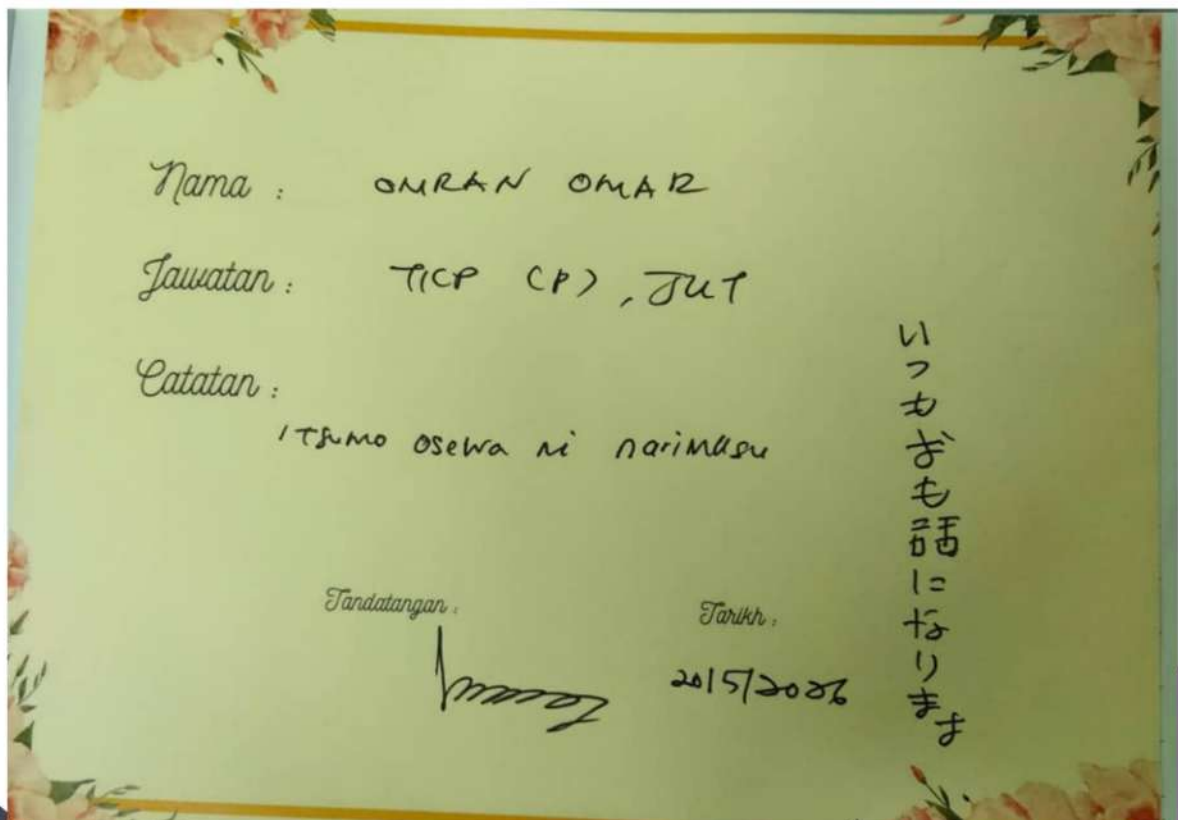 Nama : OMRAN OMAR
Jawatan : TICP (P), JUT
Catatan :
ITSUMO osewa ni narimasu
いつもおも話になります
Tandatangan :
Tarikh :
20/5/2026